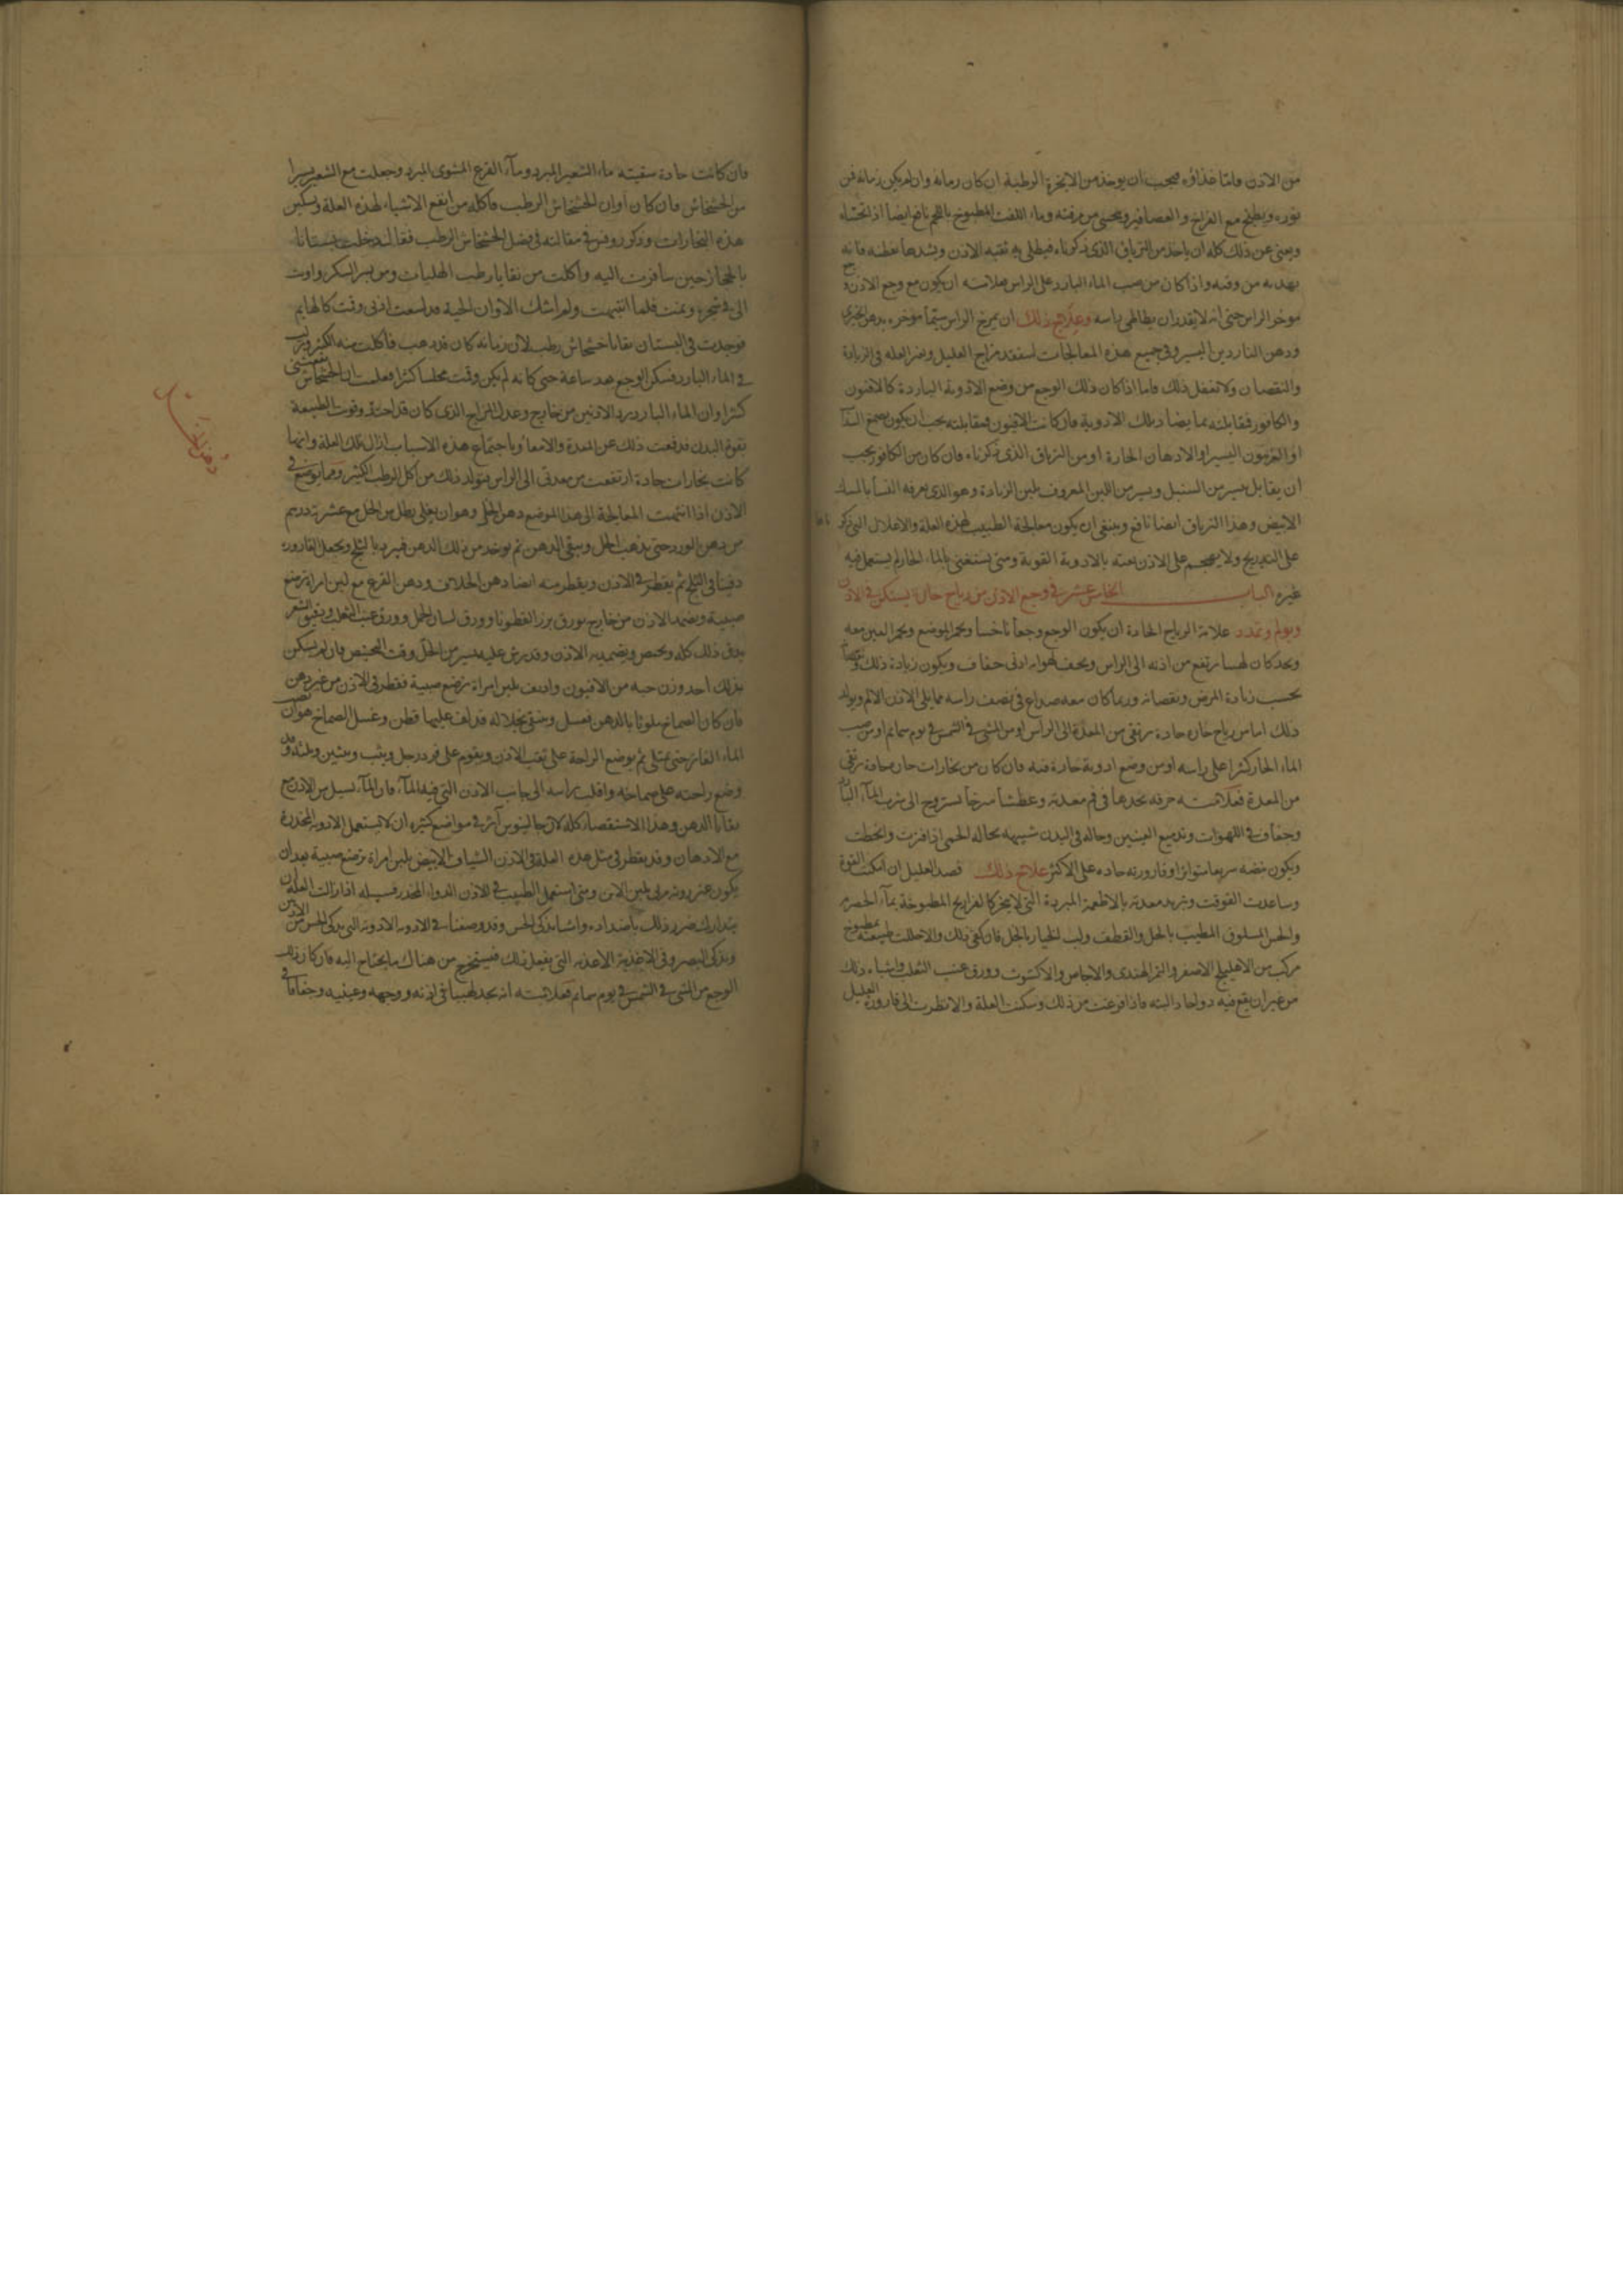 من الاذن فامّا غذاؤه فيجب ان يوخذ من الابخرة الرطبة ان كان زمانه وان لم يكن زمانه فن
بزره ويطبخ مع الفراخ والعصافير ويحسى من مرقته وماء اللفت المطبوخ باللحم نافع ايضا اذا تحساه
ويغنى عن ذلك كله ان ياخذ من الترياق الذى ذكرناه فيطلى به ثقبه الاذن ويشدها بقطنه فانه
يهديه من وقته واذا كان من صب الماء البارد على الراس فعلامته ان يكون مع وجع الاذن وجع
موخر الراس حتى انه لا يقدر ان يطاطى راسه وعلاج ذلك ان يمرخ الراس سيّما موخره بدهن الخيرى
ودهن الناردين اليسير وفى جميع هذه المعالجات استفقد مزاج العليل وتغير العله فى الزيادة
والنقصان ولا تغفل ذلك فاما اذا كان ذلك الوجع من وضع الادوية الباردة كالافيون
والكافور فقابلته بما يضاد تلك الادوية فان كانت الافيون فمقابلته يجب ان يكون بصمغ السذاب
او الفربيون اليسير او الادهان الحارة او من الترياق الذى ذكرناه فان كان من الكافور يجب
ان يقابل بيسير من السنبل ويسير من اللبن المعروف بلبن الزيادة وهو الذى يعرفه النسا بالمسك
الابيض وهذا الترياق ايضا نافع وينبغى ان يكون معالجة الطبيب لهذه العلة والاعلال التى ذكرناها
على التدريج ولا يهجم على الاذن بغته بالادوية القوية ومتى يستغنى بالماء الحار لم يستعمل فيه
غيره الباب الخامس عشر فى وجع الاذن من رياح حارة يستكن فى الاذن
ويولم وتمدد علامة الرياح الحادة ان يكون الوجع وجعاً ناخساً ويحمر الموضع ويحمر العين معه
ويجد كان لهيبا يرتفع من اذنه الى الراس ويجف لهواته ادنى جفاف ويكون زيادة ذلك ونقصانه
بحسب زيادة المرض ونقصانه وربما كان معه صداع فى نصف راسه مما يلى الاذن الالم ويولد
ذلك اما من رياح حاره حادة ترتقى من المعدة الى الراس او من المشى فى الشمس فى يوم سمايم او من صب
الماء الحار كثيرا على راسه او من وضع ادوية حارة فيه فان كان من بخارات حارة حادة ترتقى
من المعدة فعلامته حرقه يجدها فى فم معدته وعطشاً مرخياً تستروح الى شرب المآء البارد
وجفاف فى اللهوات وتدميع العينين وحاله فى البدن شبيهه بحالة الحمى اذا فترت وانحطت
ويكون نبضه سريعا متواترا وقارورته حاده على الاكثر علاج ذلك فصد العليل ان امكنت القوة
وساعدت الوقت وتبريد معدته بالاطعمة المبردة التى لا تبخر كالفراريج المطبوخة بمآء الحصرم
والخس المسلوق المطيب بالخل والقطف ولب الخيار بالخل فان كفى ذلك والا حللت طبيعته بمطبوخ
مركب من الاهليلج الاصفر والتمر الهندى والاجاص والاكشوث وورق عنب الثعلب واشباه ذلك
من غير ان يقع فيه دوا حاد البته فاذا فرغت من ذلك وسكنت العلة والا نظرت الى قارورة العليل
فان كانت حادة سقيته ماء الشعير المبرد ومآء القرع المشوى المبرد وجعلت مع الشعير يسيرا
من الخشخاش فان كان اوان الخشخاش الرطب فاكله من انفع الاشياء لهذه العلة وتسكين
هذه البخارات وذكر روفس فى مقالته فى فضل الخشخاش الرطب فقال انه دخلت بستانا
بالحجاز حين سافرت اليه واكلت من بقايا رطب الهليات ومن بسر السكر واوت
الى فى شجرة ونمت فلما انتبهت ولم اشك الا وان الحية قد لسعت اذنى وقت كالهايم
فوجدت فى البستان بقايا خشخاش رطب لان زمانه كان قد ذهب فاكلت منه الكثير
فى الماء البارد فسكن الوجع بعد ساعة حتى كانه لم يكن وقت مجلسا كثيرا فعلمت ان الخشخاش نفعنى
كثيرا وان الماء البارد برد الاذنين من خارج وعدل المزاج الذى كان قد احتد وقوت الطبيعة
بقوة البدن فدفعت ذلك عن المعدة والامعاء وباجتماع هذه الاسباب ازال تلك العلة وانها
كانت بخارات حادة ارتفعت من معدتى الى الراس يتولد ذلك من اكل الرطب الكثير ومما يوضع فى
الاذن اذا انتهت المعالجة الى هذا الموضع دهن الخل وهو ان يغلى رطل من الخل مع عشرة درهم
من دهن الورد حتى يذهب الخل ويبقى الدهن ثم يوخذ من ذلك الدهن فيبرد بالثلج ويجعل القارورة
دفينا فى الثلج ثم يقطر فى الاذن ويقطر منه ايضا دهن الخلاف ودهن القرع مع لبن امراة ترضع
صبيية ويضمد الاذن من خارج بورق بزر القطونا وورق لسان الحمل وورق عنب الثعلب ودقيق الشعير
يدق ذلك كله ويحمص ويضمد به الاذن وقد يرش عليه يسير من الخل وقت التحميص فان لم يسكن
بذلك اخذ وزن حبه من الافيون واديف بلبن امراة ترضع صبية فقطر فى الاذن من غير دهن
فان كان الصماخ ملوثا بالدهن يغسل وينقى بخلاله قد لف عليها قطن وغسل الصماخ هو ان تصب
الماء الفاتر حتى يمتلى ثم يوضع الراحة على ثقب الاذن ويقوم على فرد رجل ويثب وثبتين وثلثه وقد
وضع راحته على صماخه واقلب راسه الى جانب الاذن التى فيه المآء فان المآء يسيل من الاذن مع
بقايا الدهن وهذا الاستقصاء كله لان جالينوس آثر فى مواضع كثيره ان لا يستعمل الادوية المخدرة
مع الادهان وقد يقطر فى مثل هذه العلة فى الاذن الشياف الابيض بلبن امراة ترضع صبية بعد ان
يكون عنزروته مربى بلبن الاتن ومتى استعمل الطبيب فى الاذن الدواء المخدر فسبيله اذا زالت العلة ان
يتدارك ضرر ذلك باضداده واشيا تذكى الحس وقد وصفنا فى الادوية الادوية التى تذكى الحس من الاذن
وتذكى البصر وفى الاغذية الاغذية التى يفعل ذلك فيستخرج من هناك ما يحتاج اليه فان كان ذلك
الوجع من المشى فى الشمس فى يوم سمايم فعلامته انه يجد لهيبا فى اذنه ووجهه وعينيه وجفافا فى